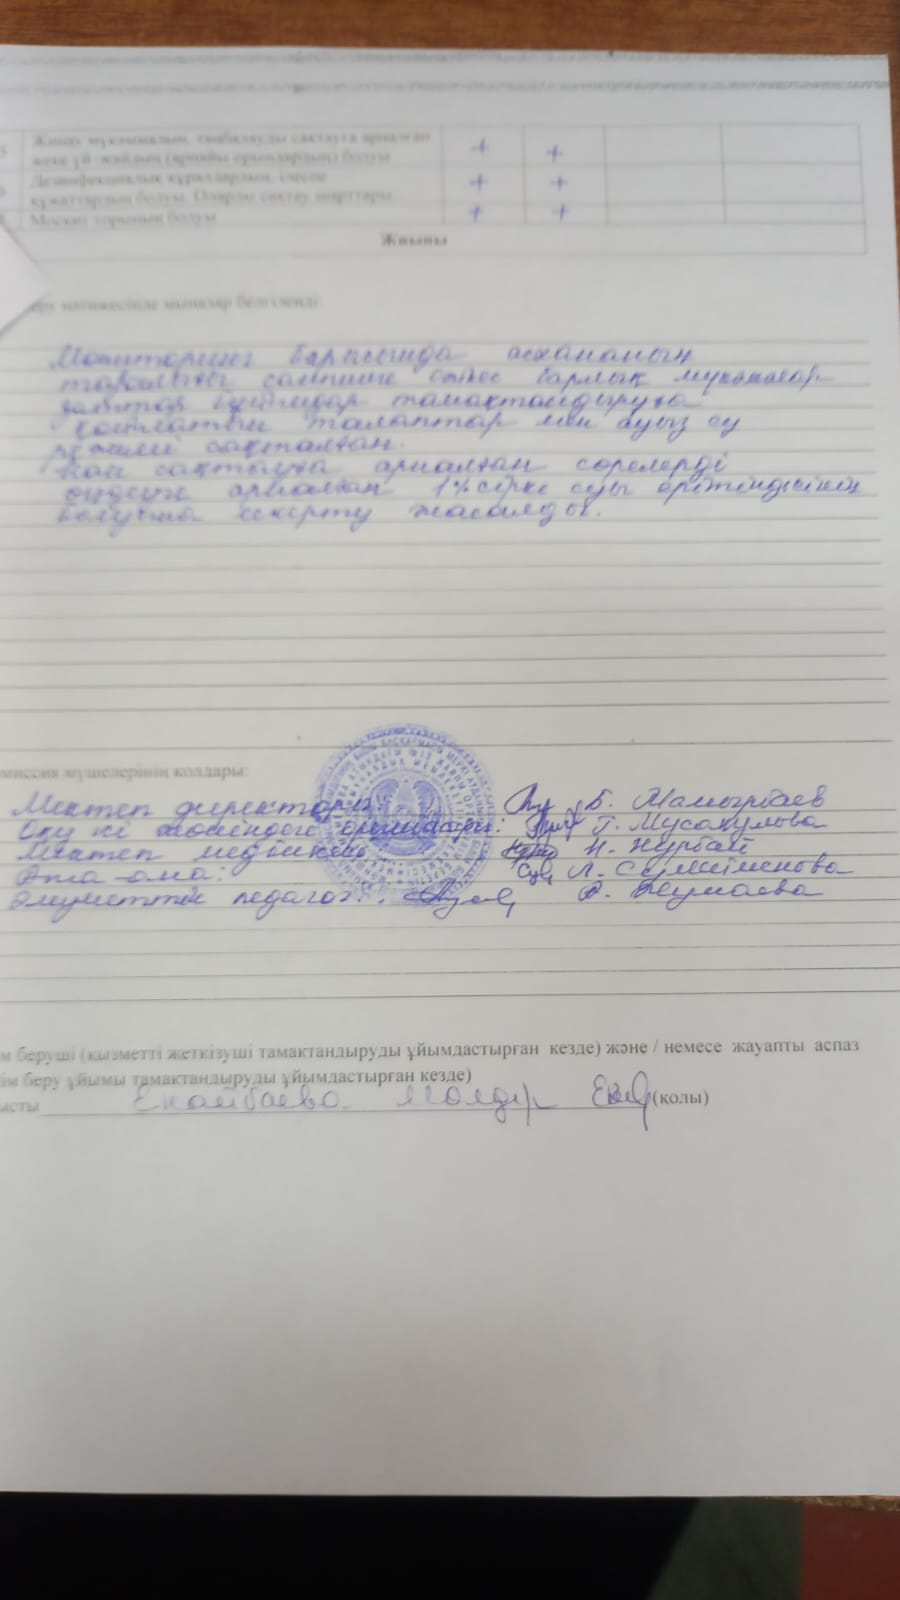 5 Жинау мүкаммалын, таңбалауды сақтауға арналған + +
жеке үй-жайдың (арнайы орындардың) болуы
6 Дезинфекциялық құралдардың, ілеспе + +
құжаттардың болуы. Оларды сақтау шарттары
Москит торының болуы + +
Жиыны
еру нәтижесінде мыналар белгіленді
Мониторинг барысында асхананың
сәйкес барлық
тамақтандыруға
қойлатын талаптар мен ауыз су
режимі сақталған.
Нан сақтауға арналған сөрелерді
өңдеуге арналған 1% сірке суы ерітіндісінің
болуына ескерту жасалды.
миссия мүшелерінің қолдары:
Мектеп директоры: Б. Мамырбаев
Оқу ісі жөніндегі орынбасары: Г. Мусакулова
Мектеп медбикесі Н. Нурбай
Ата-ана: Л.
Әлеуметтік педагог: Джумаева
м беруші (қызметті жеткізуші тамақтандыруды ұйымдастырған кезде) және / немесе жауапты аспаз
ім беру ұйымы тамақтандыруды ұйымдастырған кезде)
ысты Молдір (қолы)